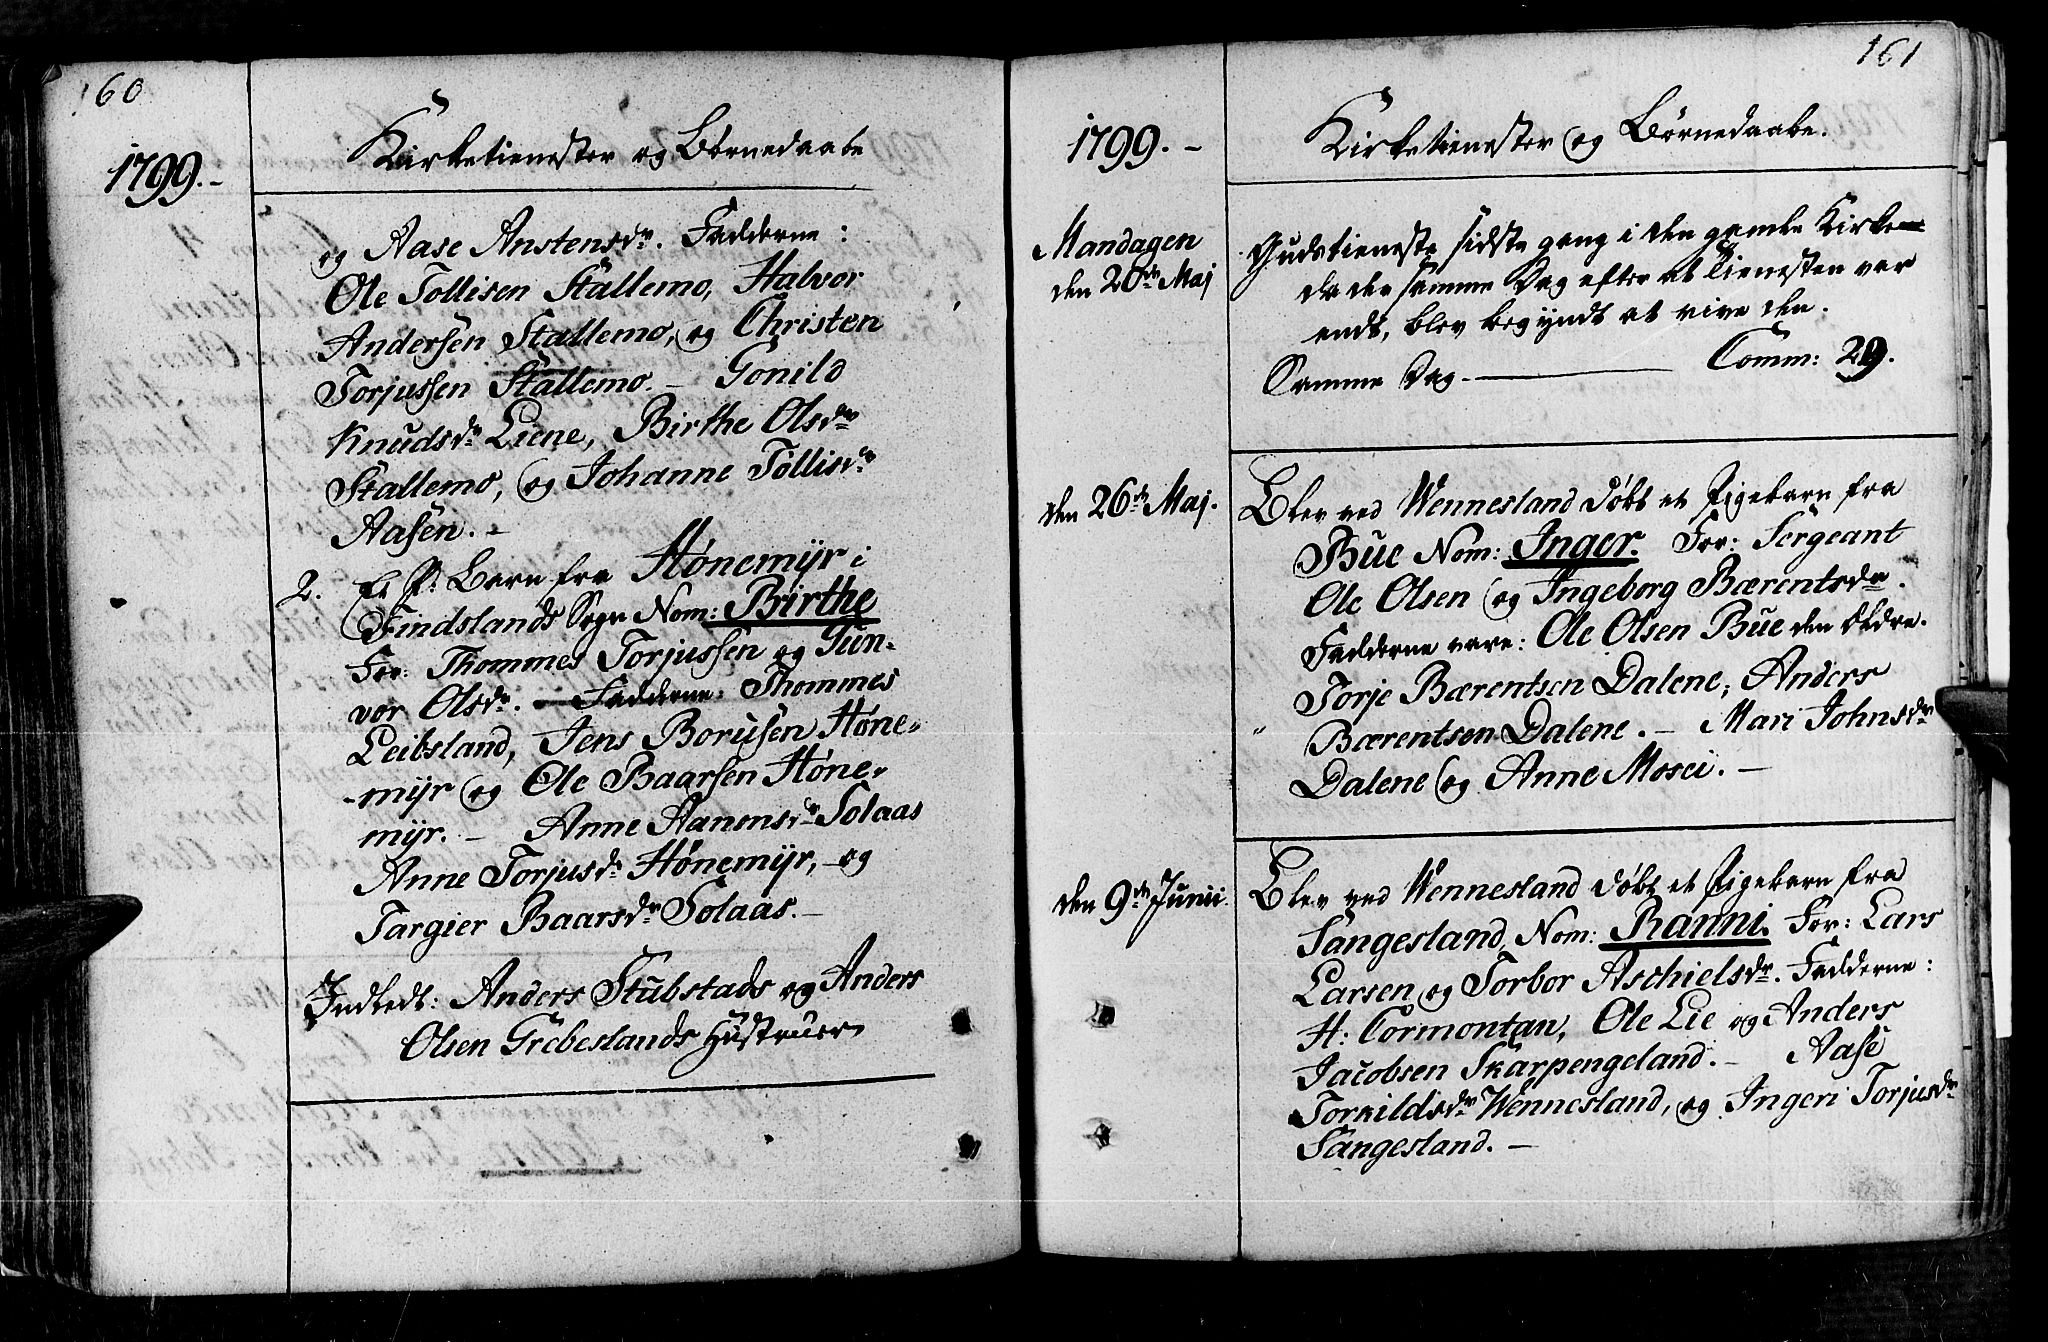 160
1799.-
Kirketienester og Børnedaabe
og Aase Anstensdr. Fadderne:
Ole Tollisen Stallemo, Halvor
Andersen Stallemo, og Christen
Torjussen Stallemo. - Gonild
Knudsdr Liene, Birthe Olsdr
Stallemo, og Johanne Tollisdr
Aasen. -
2. Et P. Barn fra Hønemyr i
Findslands Sogn Nom: Birthe
For: Thommes Torjussen og Gun-
vor Olsdr. - Fadderne: Thommes
Leibsland, Jens Borusen Høne-
-myr og Ole Baarsen Høne-
myr. - Anne Aanensdr Solaas
Anne Torjusdr Hønemyr, og
Targier Baarsdr Solaas. -
Indledt: Anders Stubstads og Anders
Olsen Grebeslands Hustruer
161
1799. -
Kirketienester og Børnedaabe.
Mandagen
den 20de Maj
Gudstieneste sidste gang i den gamle Kirke
da der samme Dag efter at Tienesten var
endt, blev begyndt at rive den.
Samme Dag. - Comm: 29.
den 26de Maj.
Blev ved Wennesland døbt et Pigebarn fra
Bue Nom: Inger. For: Sergeant
Ole Olsen og Ingeborg Bærentsdr.
Fadderne vare: Ole Olsen Bue den Ældre.
Torje Bærentsen Dalene, Anders
Bærentsen Dalene. - Mari Johnsdr
Dalene og Anne Mosei. -
den 9de Junii.
Blev ved Wennesland døbt et Pigebarn fra
Sangesland, Nom: Ranni. For: Lars
Larsen og Torbor Aschielsdr. Fadderne:
H: Cormontan, Ole Lie og Anders
Jacobsen Skarpengeland. - Aase
Torkildsdr Wennesland, og Ingeri Torjusdr
Sangesland. -